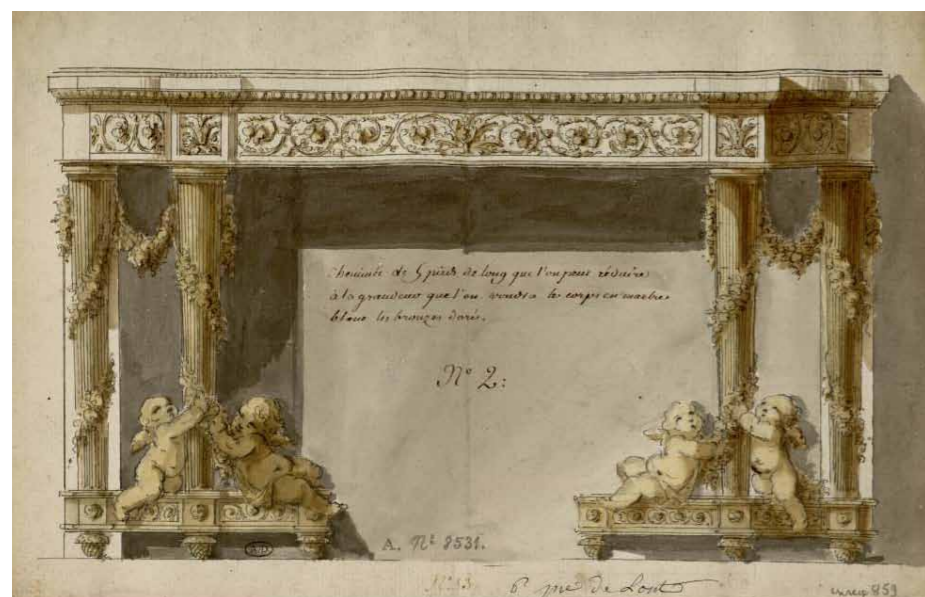 Cheminée de 5 pieds de long que l'on peut réduire
à la grandeur que l'on voudra le corps en marbre
blanc les bronzes dorés.
N° 2:
A. N° 8531.
N° 13
6 de
859